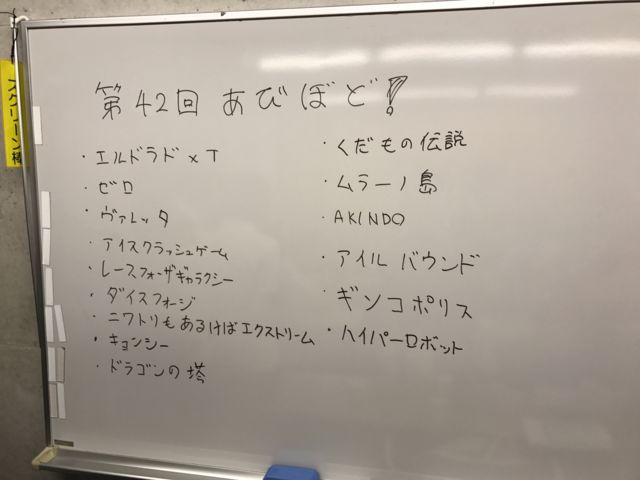 第42回 あびぼど!
・エルドラド×T
・ゼロ
・ヴァレッタ
・アイスクラッシュゲーム
・レースフォーザギャラクシー
・ダイスフォージ
・ニワトリもあるけばエクストリーム
・キョンシー
・ドラゴンの塔
・くだもの伝説
・ムラーノ島
・AKINDO
・アイル バウンド
・ギンコポリス
・ハイパーロボット
スクリーン